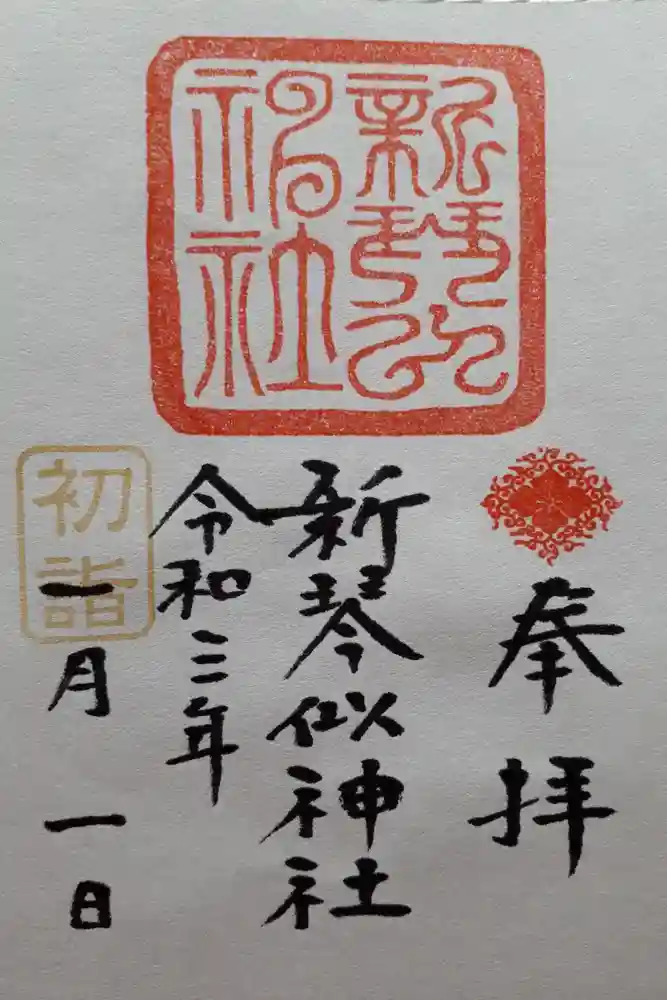 奉拝
新琴似神社
新琴似神社
令和三年
初詣
一月一日